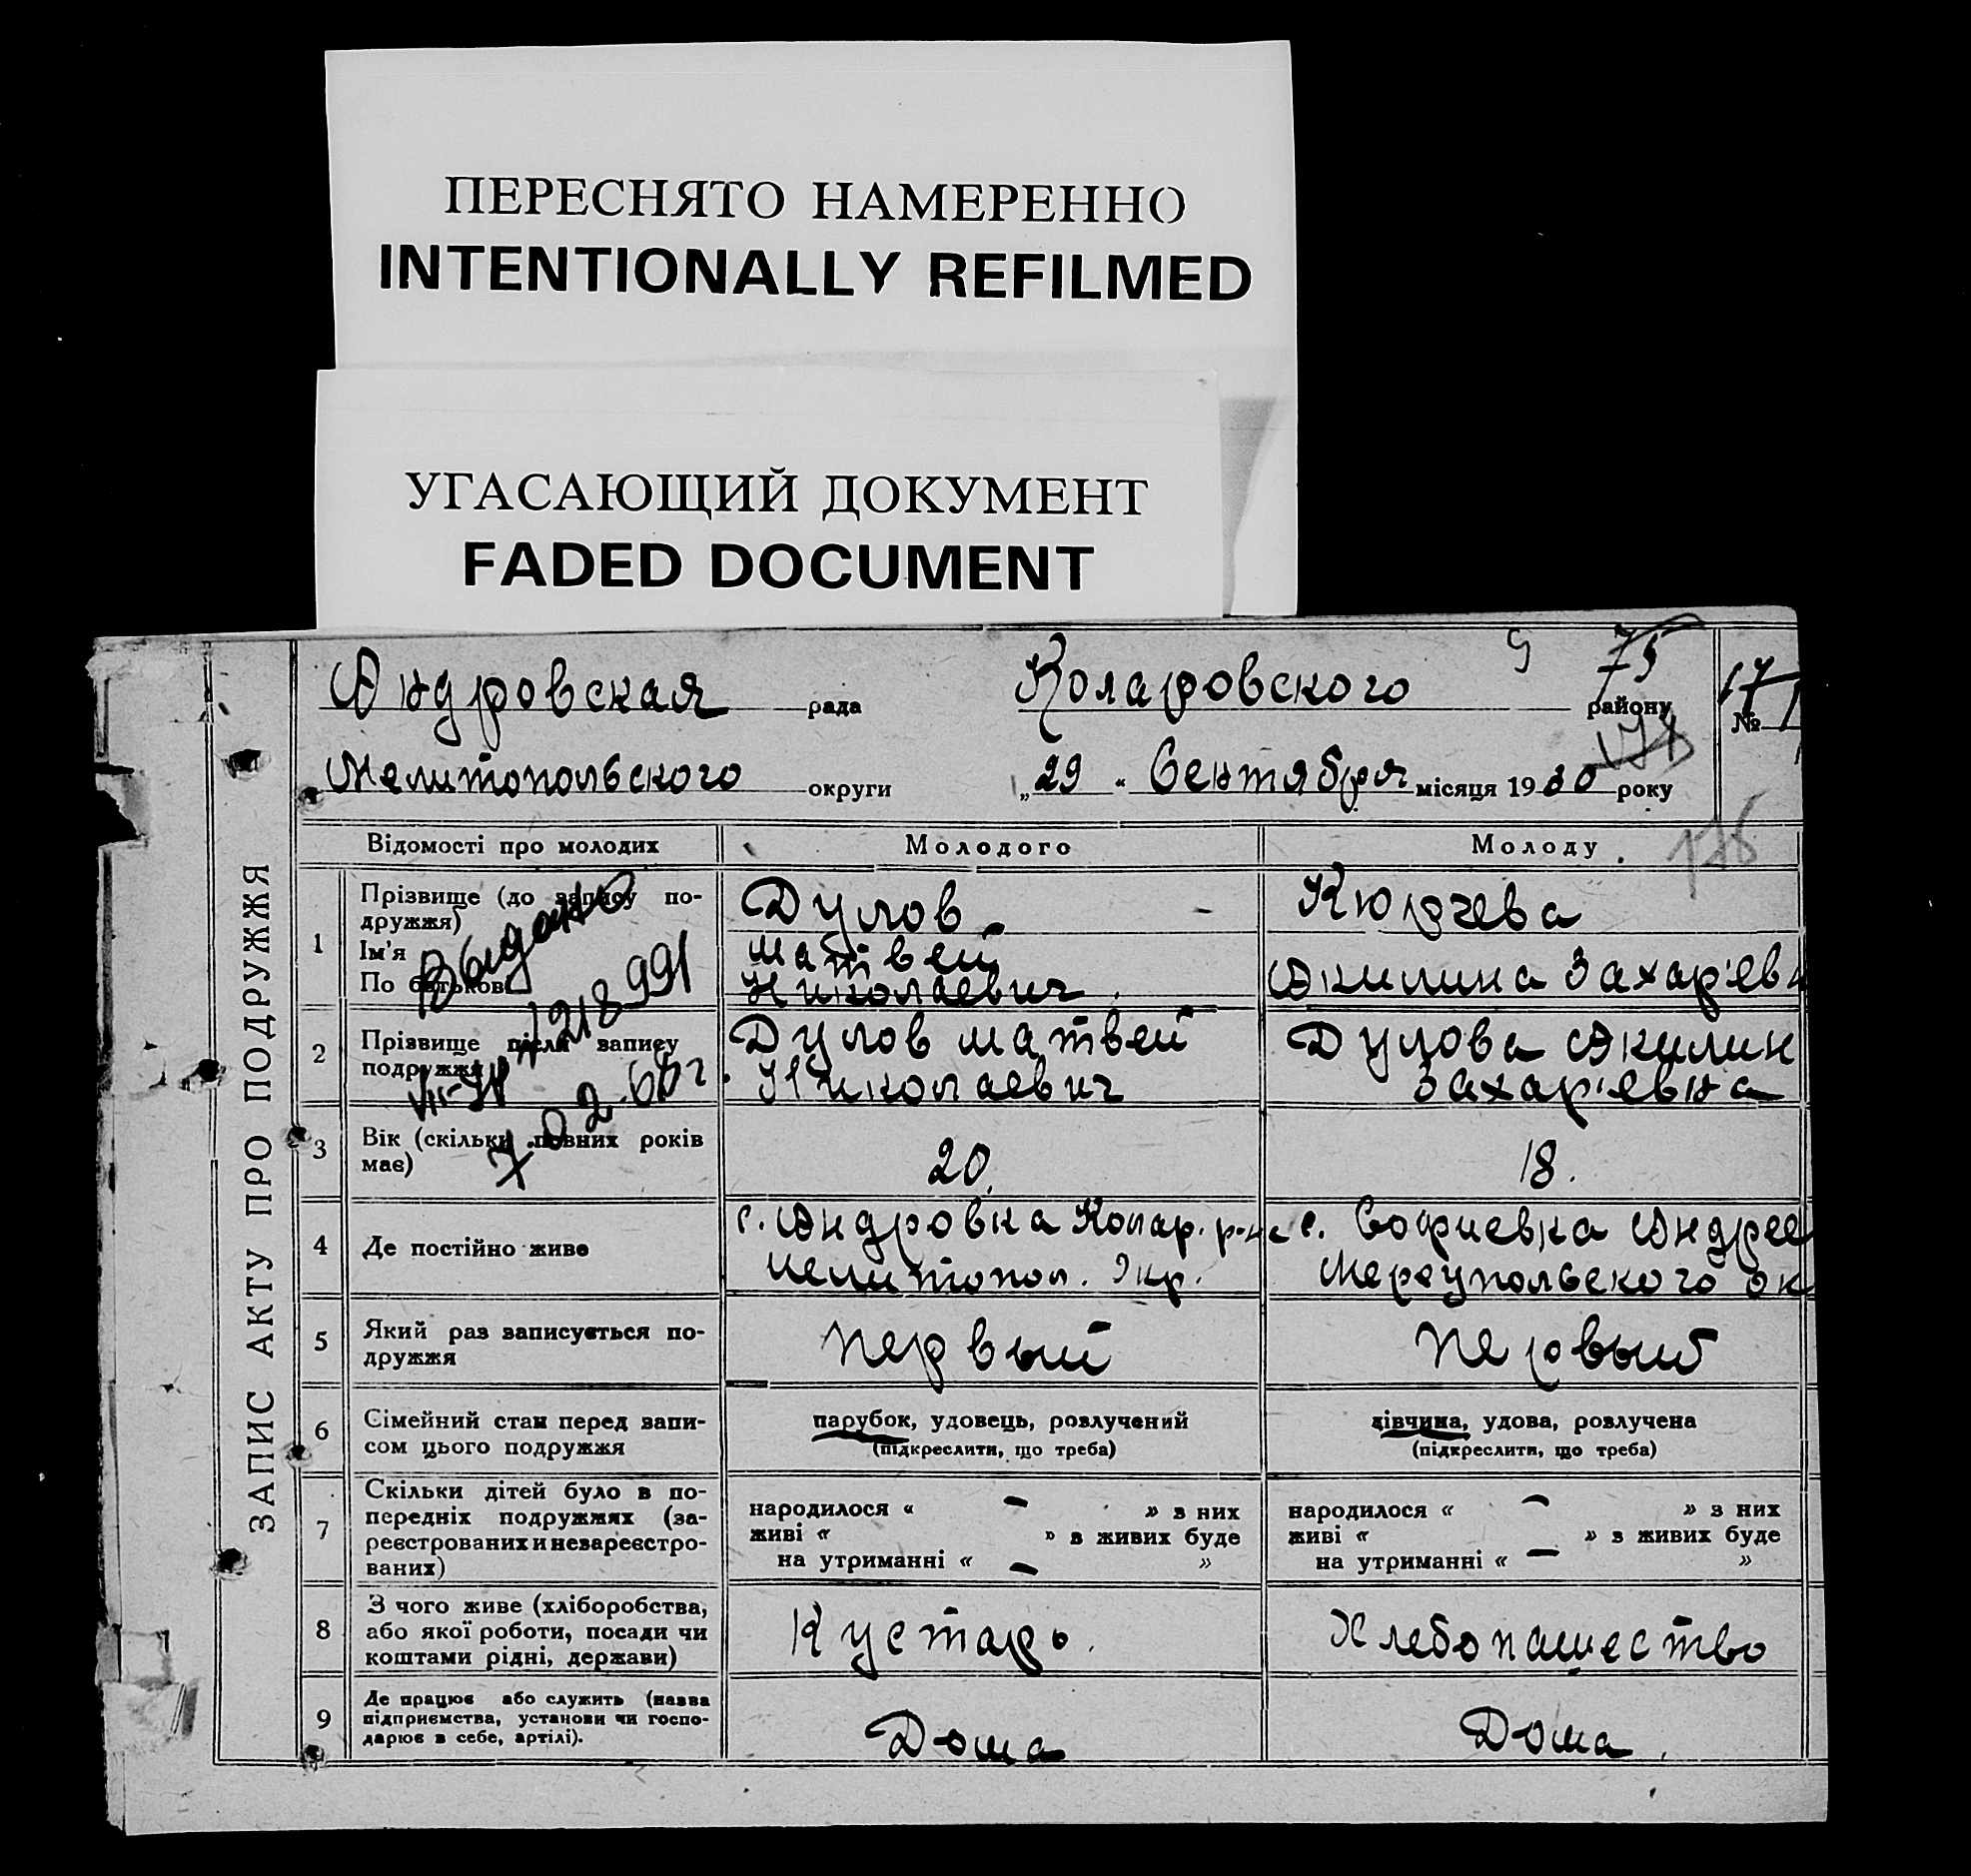 ПЕРЕСНЯТО НАМЕРЕННО
INTENTIONALLY REFILMED
УГАСАЮЩИЙ ДОКУМЕНТ
FADED DOCUMENT
ЗАПИС АКТУ ПРО ПОДРУЖЖЯ
Андровская рада Коларовского району 75 № 171
Мелитопольского округи „29“ Сентября місяця 1930 року
178
Відомості про молодих Молодого Молоду
176
1 Прізвище (до запису по-
дружжя)
Ім'я
По батькові
Дулов
Матвей
Николаевич
Кюрчева
Акилина Захарьевн
Выдано
1218991
7.02.66г
2 Прізвище після запису
подружжя
Дулов Матвей
Николаевич
Дулова Акилин
Захарьевна
3 Вік (скільки повних років
має)
20.
18.
4 Де постійно живе
с. Андровка Колар. р-на
Мелитопол. Окр.
с. Софиевка Андрее
Мереупольского ок
5 Який раз записується по-
дружжя
первый
первый
6 Сімейний стан перед запи-
сом цього подружжя
парубок, удовець, розлучений
(підкреслити, що треба)
дівчина, удова, розлучена
(підкреслити, що треба)
7 Скільки дітей було в по-
передніх подружжях (за-
реєстрованих и незареєстро-
ваних)
народилося « – » з них
живі « » в живих буде
на утриманні « – »
народилося « – » з них
живі « » з живих буде
на утриманні « – »
8 З чого живе (хліборобства,
або якої роботи, посади чи
коштами рідні, держави)
Кустарь.
Хлебопашество
9 Де працює або служить (назва
підприємства, установи чи госпо-
дарює в себе, артілі).
Дома
Дома.